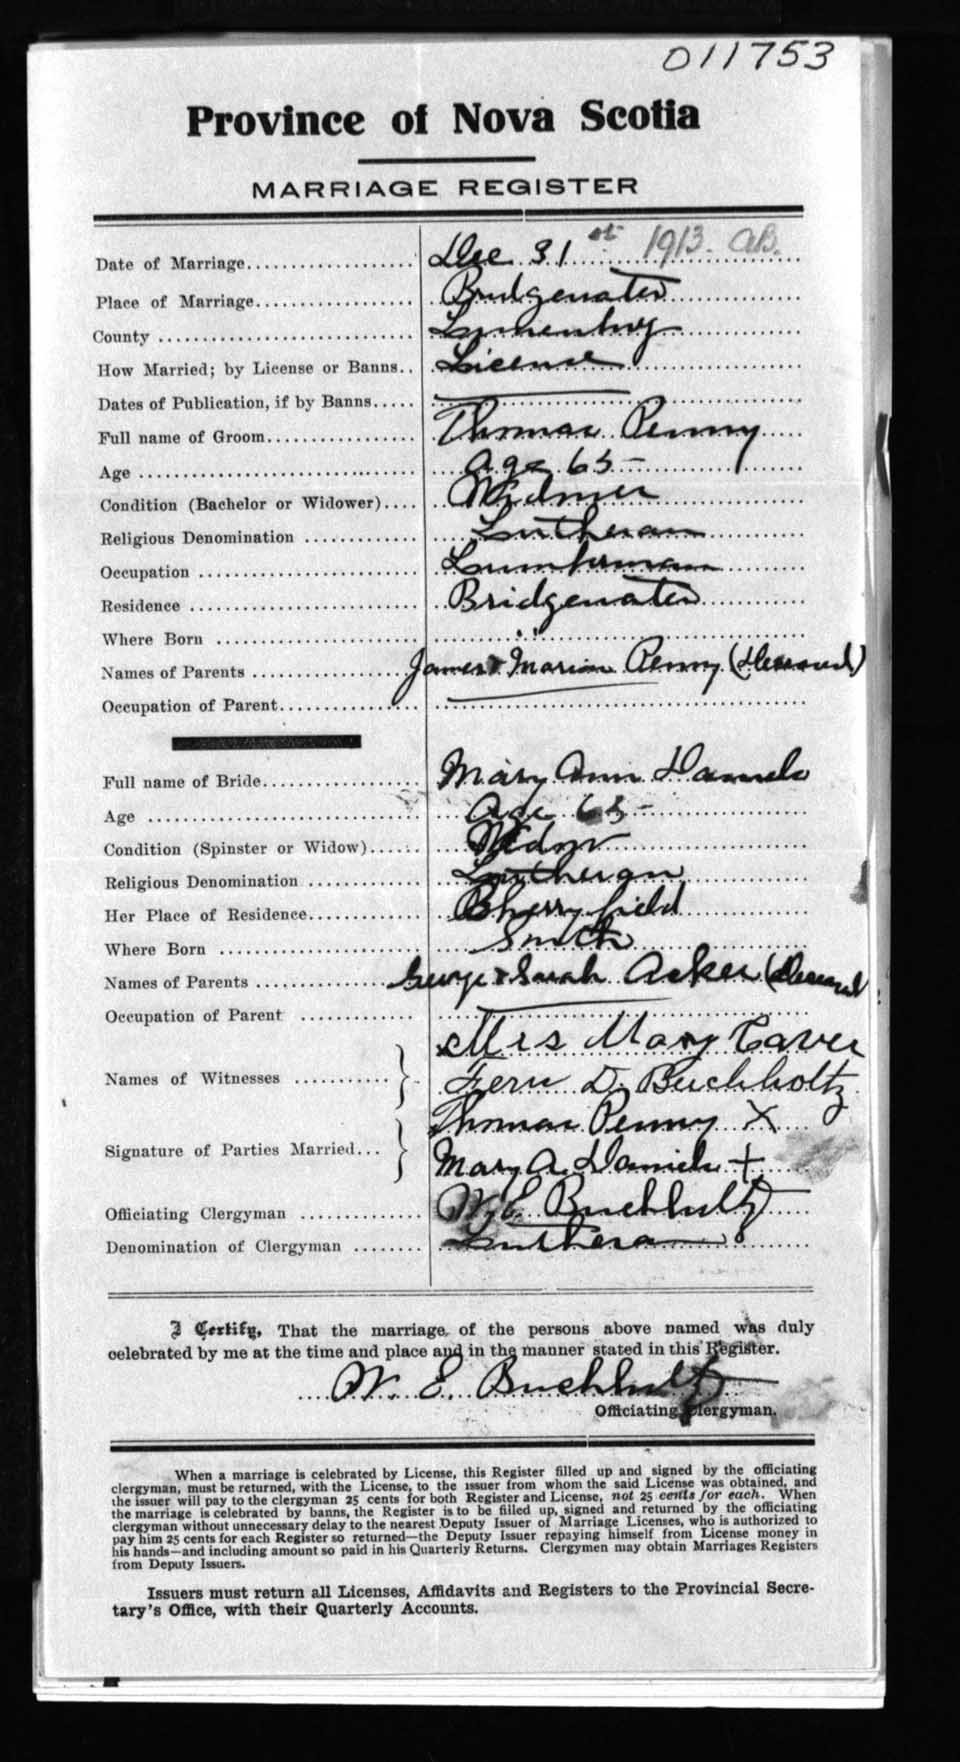 011753
Province of Nova Scotia
MARRIAGE REGISTER
Date of Marriage.................... Dec 31st 1913. AB.
Place of Marriage.................. Bridgewater
County ............................. Lunenburg
How Married; by License or Banns.. License
Dates of Publication, if by Banns.....
Full name of Groom................. Thomas Penny
Age ................................ Age 65
Condition (Bachelor or Widower).... Widower
Religious Denomination ............. Lutheran
Occupation ......................... Lumberman
Residence .......................... Bridgewater
Where Born ....................... " "
Names of Parents ................... James & Marion Penny (Deceased)
Occupation of Parent................
Full name of Bride.................. Mary Ann Daniels
Age ............................... Age 65
Condition (Spinster or Widow)...... Widow
Religious Denomination ............. Lutheran
Her Place of Residence............. Cherryfield
Where Born .......................
Names of Parents ................ George & Sarah Acker (Deceased
Occupation of Parent .............
Names of Witnesses ........... Mrs Mary
Fern D. Buchholtz
Signature of Parties Married... Thomas Penny X
Mary A. Daniels +
Officiating Clergyman .............. W. E. Buchholtz
Denomination of Clergyman ........ Lutheran
I Certify, That the marriage of the persons above named was duly
celebrated by me at the time and place and in the manner stated in this Register.
W. E. Buchholtz
Officiating Clergyman.
When a marriage is celebrated by License, this Register filled up and signed by the officiating
clergyman, must be returned, with the License, to the issuer from whom the said License was obtained, and
the issuer will pay to the clergyman 25 cents for both Register and License, not 25 cents for each. When
the marriage is celebrated by banns, the Register is to be filled up, signed and returned by the officiating
clergyman without unnecessary delay to the nearest Deputy Issuer of Marriage Licenses, who is authorized to
pay him 25 cents for each Register so returned—the Deputy Issuer repaying himself from License money in
his hands—and including amount so paid in his Quarterly Returns. Clergymen may obtain Marriages Registers
from Deputy Issuers.
Issuers must return all Licenses, Affidavits and Registers to the Provincial Secre-
tary's Office, with their Quarterly Accounts.